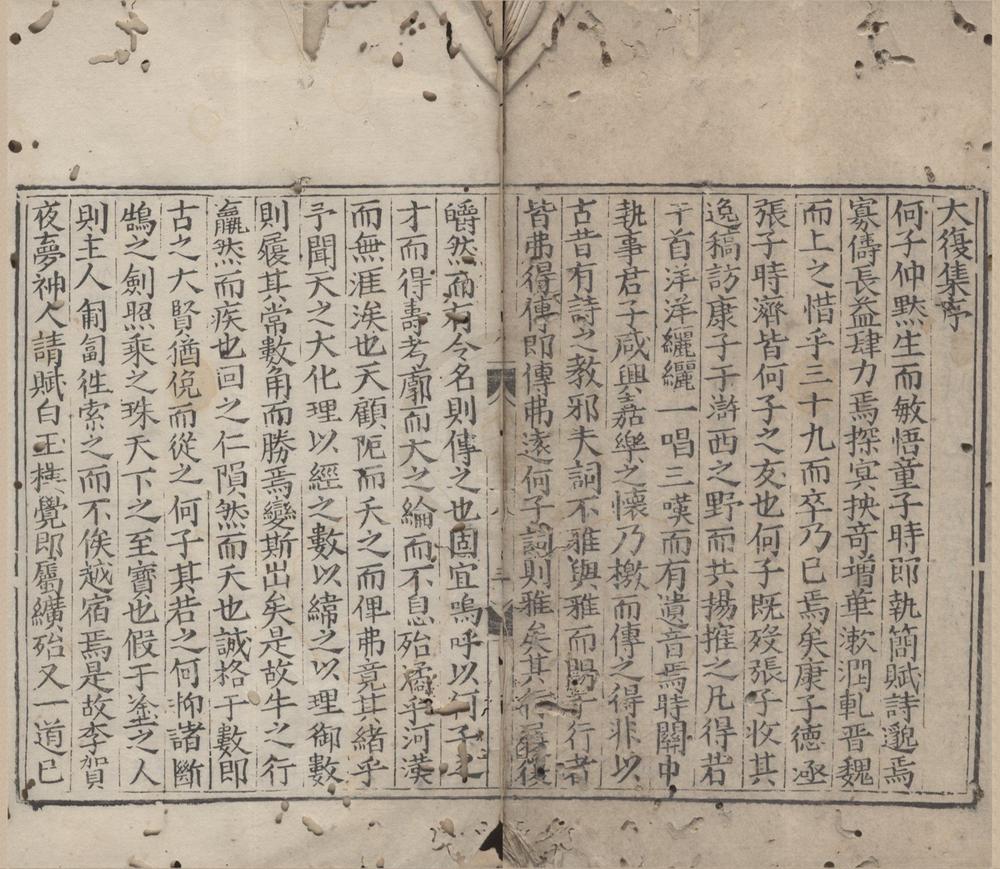 大復集序
何子仲默生而敏悟童子時即執簡賦詩邈焉
寡儔長益肆力焉探冥抉奇增華漱潤軋晉魏
而上之惜乎三十九而卒乃已焉矣康子德涵
張子時濟皆何子之友也何子既歿張子收其
逸稿訪康子于滸西之野而共揚搉之凡得若
干首洋洋纚纚一唱三嘆而有遺音焉時關中
執事君子咸興嘉樂之懷乃檄而傳之得非以
古昔有詩之教邪夫詞不雅與雅而 于行者
皆弗得傳即傳弗遠何子詞則雅矣其行 後
皭然而有令名則傳之也固宜嗚呼以何子之
才而得壽考廓而大之綸而不息殆潏乎河漢
而無涯涘也天顧阨而夭之而俾弗竟其緒乎
予聞天之大化理以經之數以緯之以理御數
則履其常數角而勝焉變斯出矣是故牛之行
麤然而疾也回之仁隕然而夭也誠格于數即
古之大賢猶俛而從之何子其若之何抑諸斷
鵠之劍照乘之珠天下之至寶也假于塗之人
則主人匍匐徃索之而不俟越宿焉是故李賀
夜夢神人請賦白玉樓覺即屬纊殆又一道已